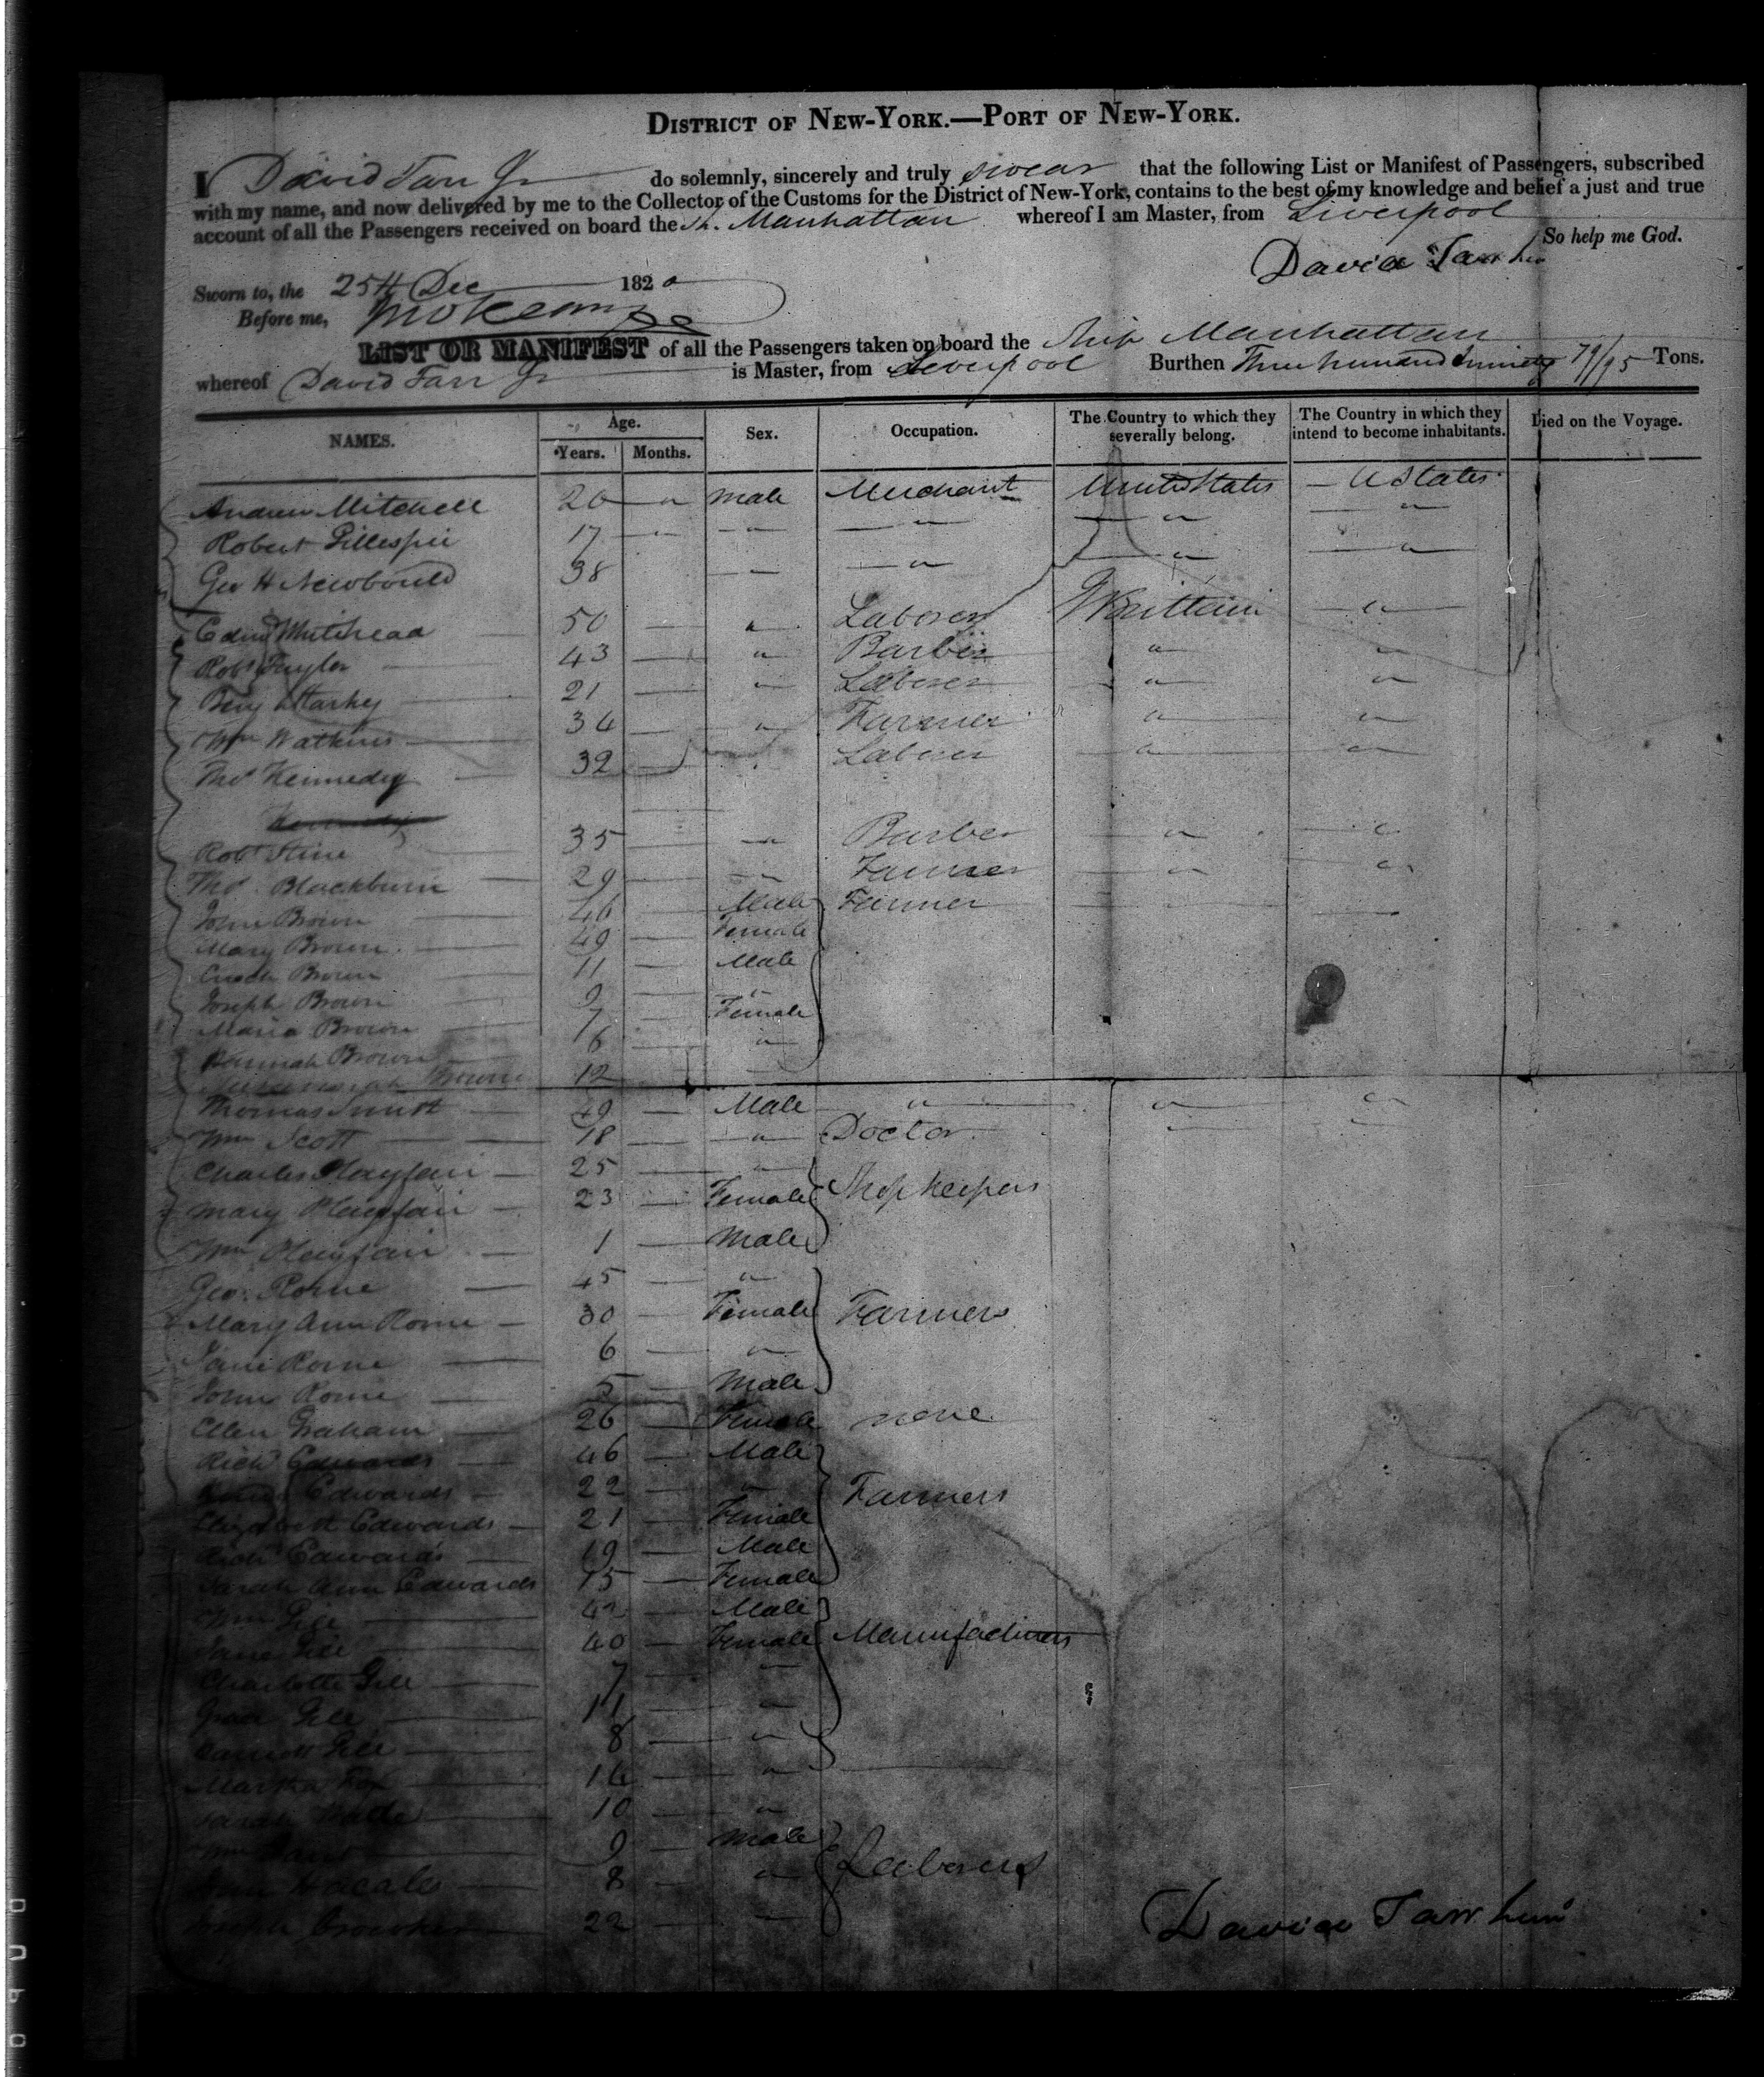 DISTRICT OF NEW-YORK.—PORT OF NEW-YORK.
I David Tarr Jr do solemnly, sincerely and truly swear that the following List or Manifest of Passengers, subscribed
with my name, and now delivered by me to the Collector of the Customs for the District of New-York, contains to the best of my knowledge and belief a just and true
account of all the Passengers received on board the Sh. Manhattan whereof I am Master, from Liverpool
So help me God.
David Tarr Jun
Sworn to, the 25th Dec 1820
Before me,
LIST OR MANIFEST of all the Passengers taken on board the Ship Manhattan
whereof David Tarr Jr is Master, from Liverpool Burthen Three hundred & ninety 79/95 Tons.
NAMES. Age. Years. Months. Sex. Occupation. The Country to which they severally belong. The Country in which they intend to become inhabitants. Died on the Voyage.
Andrew Mitchell 20 " male Merchant United States — U States
Robert Gillespie 17 " " " " "
Geo H Newbould 38 — " " "
Whitehead 50 " Laborer G Brittain "
Robt Taylor 43 " Barber " "
Benj Starkey 21 " Laborer " "
Wm Watkins 34 " Farmer " "
Thos Kennedy 32 " Laborer " "
Kennedy
Robt Stine 35 " Barber " "
Thos Blackburn 29 " Farmer " "
John Brown 46 Male Farmer
Mary Brown 49 Female
Enoch Brown 11 Male
Joseph Brown 9 "
Maria Brown 7 Female
Hannah Brown 6 "
Brown 12
Thomas 49 Male " " "
Wm Scott 18 " Doctor
Charles Playfair 25 "
Mary Playfair 23 Female Shop keepers
Wm Playfair 1 Male
Geo. Rome 45 "
Mary Ann Rome 30 Female Farmers
Jane Rome 6 "
John Rome 5 Male
Ellen Graham 26 Female none
Richd Edwards 46 Male
Edwards 22 " Farmers
Elizabeth Edwards 21 Female
Richd Edwards 19 Male
Sarah Ann Edwards 15 Female
Wm Gill 42 Male
Jane Gill 40 Female Manufacturers
Charlotte Gill 7 "
Grace Gill 11 "
Gill 8 "
Martha Fox 14 "
Sarah 10 "
Wm 9 Male
8 " Laborers
Joseph Crowther 22 "
David Tarr Jun